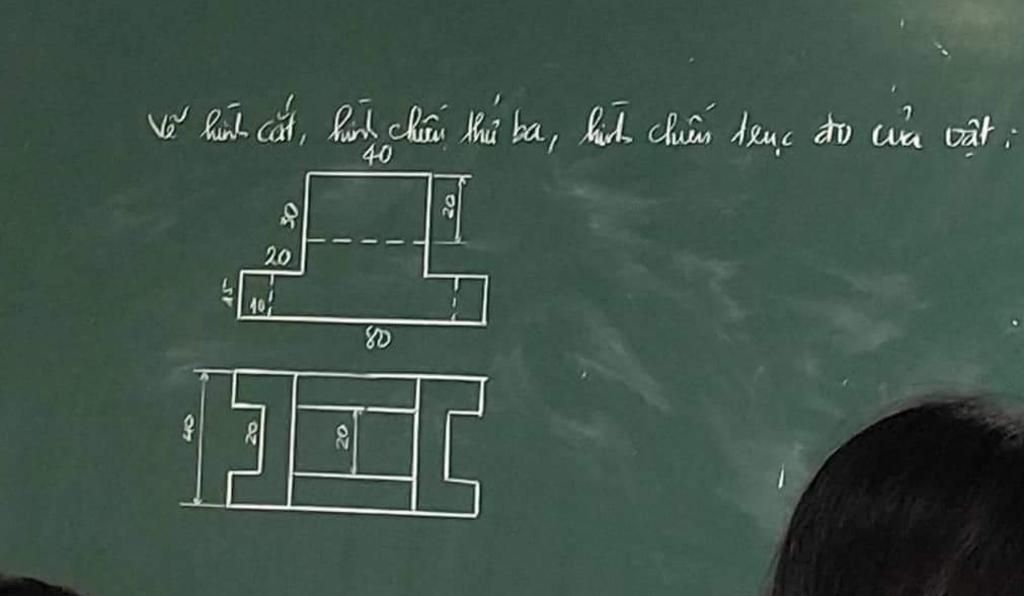 Vẽ hình cắt, hình chiếu thứ ba, hình chiếu trục đo của vật:
40
30
20
20
15
10
80
40
20
20